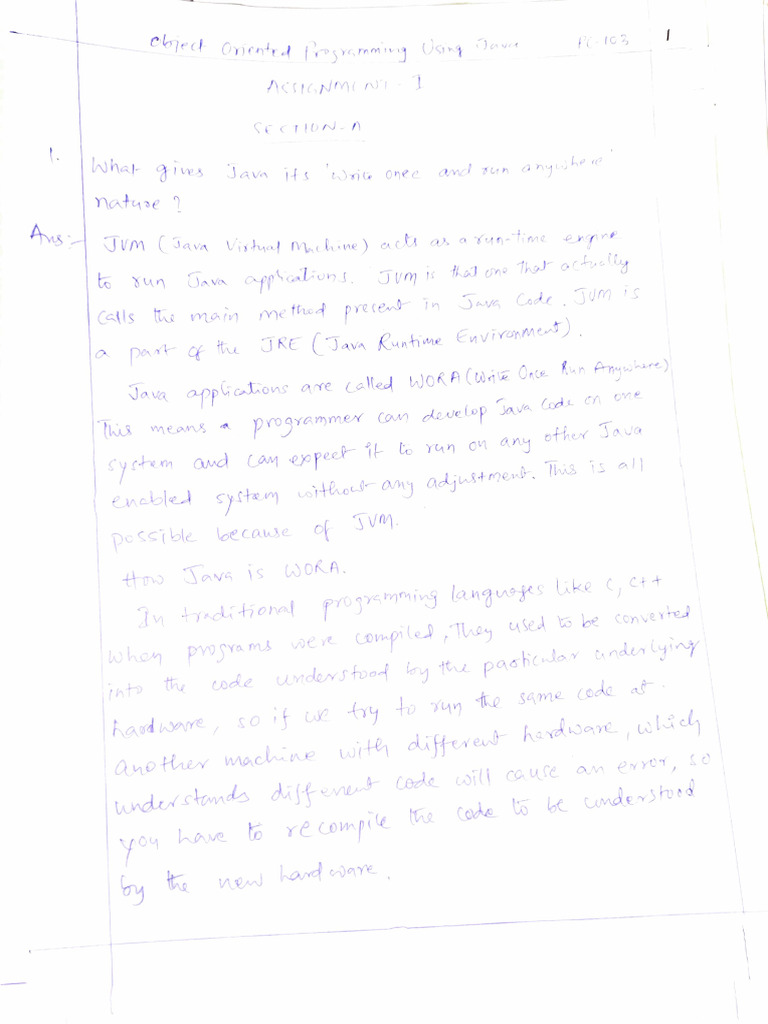 Object Oriented Programming Using Java PC-103 1
ASSIGNMENT - I
SECTION-A
1. What gives Java its 'Write once and run anywhere'
nature?
Ans:- JVM (Java Virtual Machine) acts as a run-time engine
to run Java applications. JVM is that one that actually
calls the main method present in Java Code. JVM is
a part of the JRE (Java Runtime Environment).
Java applications are called WORA (Write Once Run Anywhere)
This means a programmer can develop Java Code on one
system and can expect it to run on any other Java
enabled system without any adjustment. This is all
possible because of JVM.
How Java is WORA.
In traditional programming languages like C, C++
when programs were compiled, They used to be converted
into the code understood by the particular underlying
hardware, so if we try to run the same code at
another machine with different hardware, which
understands different code will cause an error, so
you have to recompile the code to be understood
by the new hardware.